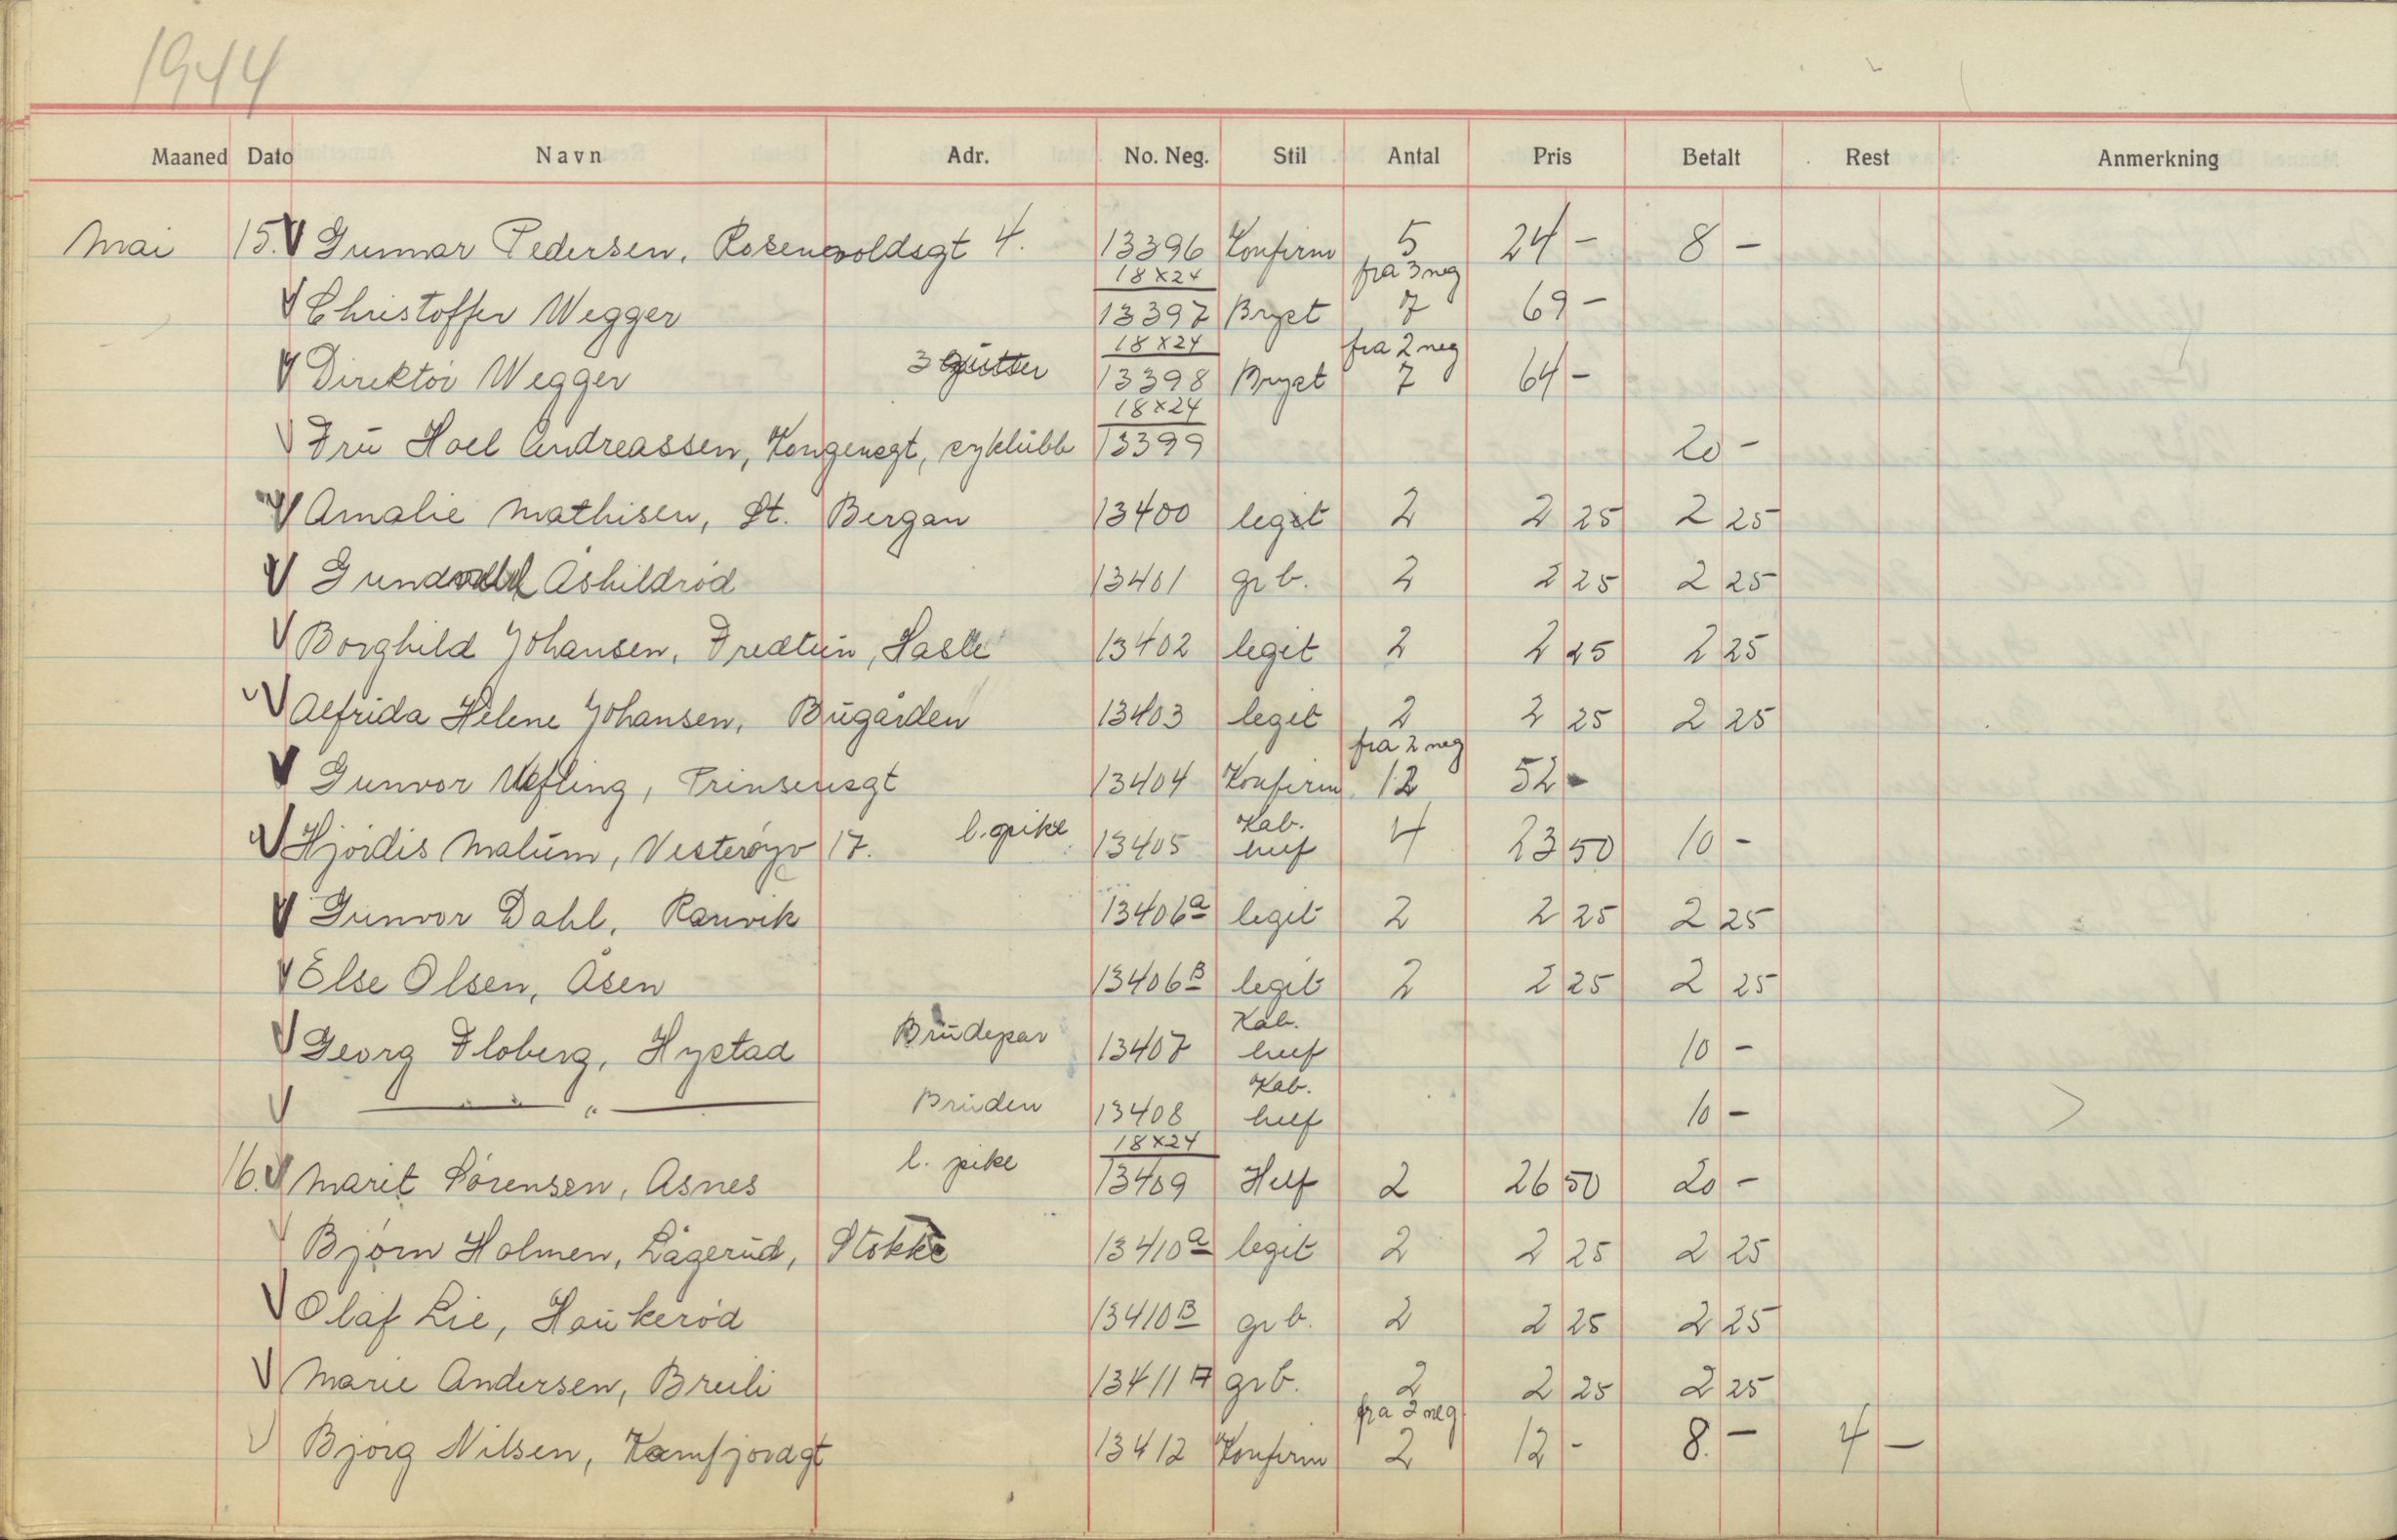 1944
Maaned Dato Navn Adr. No. Neg. Stil Antal Pris Betalt Rest Anmerkning
Mai 15. V Gunnar Pedersen, Rosenvoldsgt 4. 13396 Konfirm 5 24 - 8 -
18x24 fra 3 neg
V Christoffer Wegger 13397 Bryst 7 69 -
18x24 fra 2 neg
V Direktör Wegger 3 gutter 13398 Bryst 7 64 -
18x24
V Fru Hoel Andreassen, Kongensgt, syklubb 13399 20 -
V Amalie Mathisen, St. Bergan 13400 legit 2 2 25 2 25
V Åshildröd 13401 gr b. 2 2 25 2 25
V Borghild Johansen, Fredtun, Hasle 13402 legit 2 2 25 2 25
V Alfrida Helene Johansen, Bugården 13403 legit 2 2 25 2 25
fra 2 neg
V Gunvor Wefling, Prinsensgt 13404 Konfirm 12 52 -
l. pike Kab.
V Hjördis Malum, Vesteröyv 17. 13405 huf 4 23 50 10 -
V Gunvor Dahl, Ranvik 13406a legit 2 2 25 2 25
V Else Olsen, Åsen 13406B legit 2 2 25 2 25
Brudepar Kab.
V Georg Floberg, Hystad 13407 huf 10 -
Kab.
V — " — Bruden 13408 huf 10 -
l. pike 18x24
16. V Marit Sörensen, Asnes 13409 Helf 2 26 50 20 -
V Björn Holmen, Lågerud, Stokke 13410a legit 2 2 25 2 25
V Olaf Lie, Haukeröd 13410B gr b. 2 2 25 2 25
V Marie Andersen, Breili 13411A gr b. 2 2 25 2 25
fra 2 neg
V Björg Nilsen, Kamfjordgt 13412 Konfirm 2 12 - 8. - 4 -